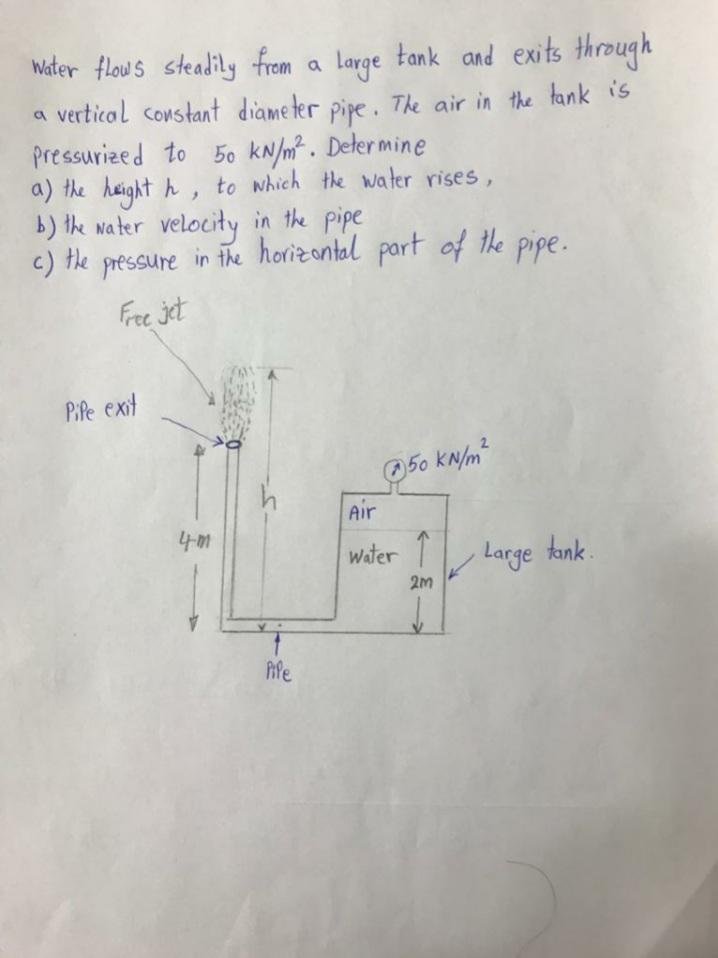 Water flows steadily from a large tank and exits through
a vertical constant diameter pipe. The air in the tank is
pressurized to 50 kN/m². Determine
a) the height h, to which the water rises,
b) the water velocity in the pipe
c) the pressure in the horizontal part of the pipe.
Free jet
Pipe exit
50 KN/m²
h
Air
4m
Water
Large tank.
2m
Pipe